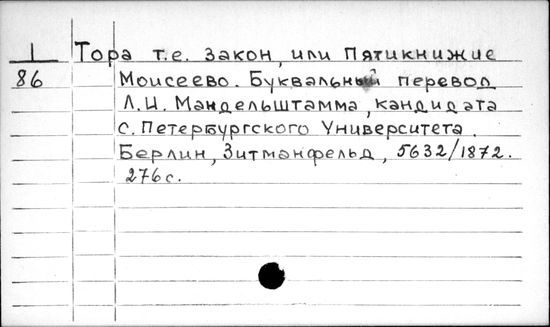 I Тора т.е. Закон, или Пятикнижие
86 Моисеево. Буквальный перевод
Л.И. Мандельштамма, кандидата
С. Петербургского Университета.
Берлин, Зитманфельд, 5632/1872.
276 с.